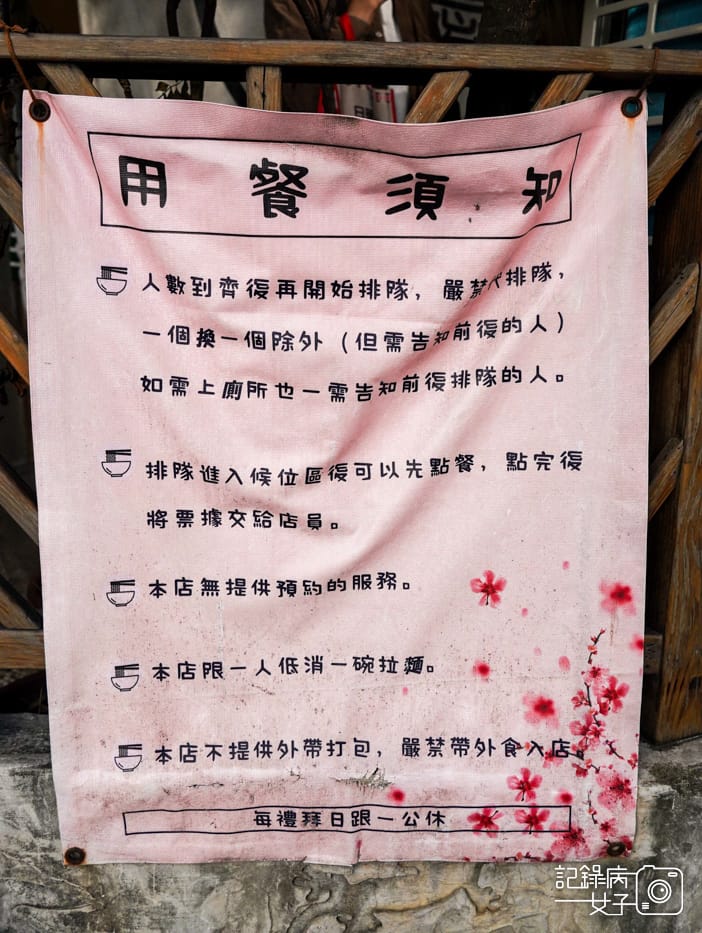 用餐須知
人數到齊後再開始排隊，嚴禁代排隊，
一個換一個除外（但需告知前後的人）
如需上廁所也一需告知前後排隊的人。
排隊進入候位區後可以先點餐，點完後
將票據交給店員。
本店無提供預約的服務。
本店限一人低消一碗拉麵。
本店不提供外帶打包，嚴禁帶外食入店。
每禮拜日跟一公休
記錄病
女子